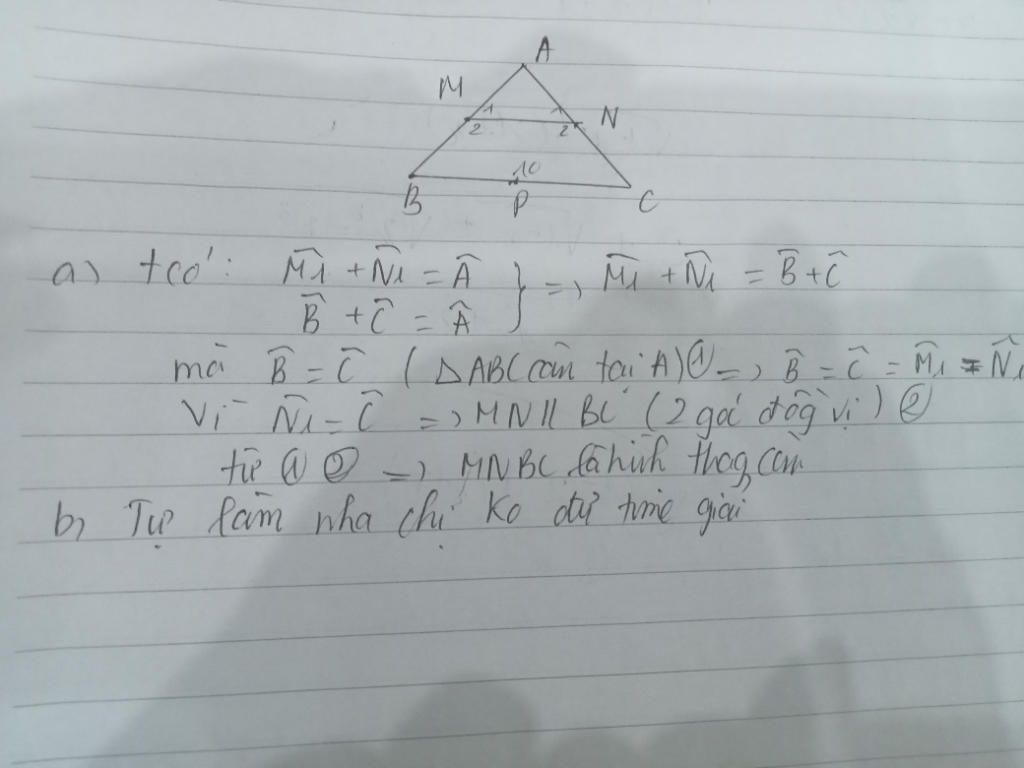 A
M 1 1 N
2 2
10
B P C
a) tcó: M̂1 + N̂1 = Â } => M̂1 + N̂1 = B̂ + Ĉ
B̂ + Ĉ = Â
mà B̂ = Ĉ (△ABC cân tại A) ① => B̂ = Ĉ = M̂1 = N̂1
Vì N̂1 = Ĉ => MN // BC (2 góc đồg vị) ②
từ ① ② => MNBC là hìh thag cân
b) Tự làm nha chị ko đủ time giải